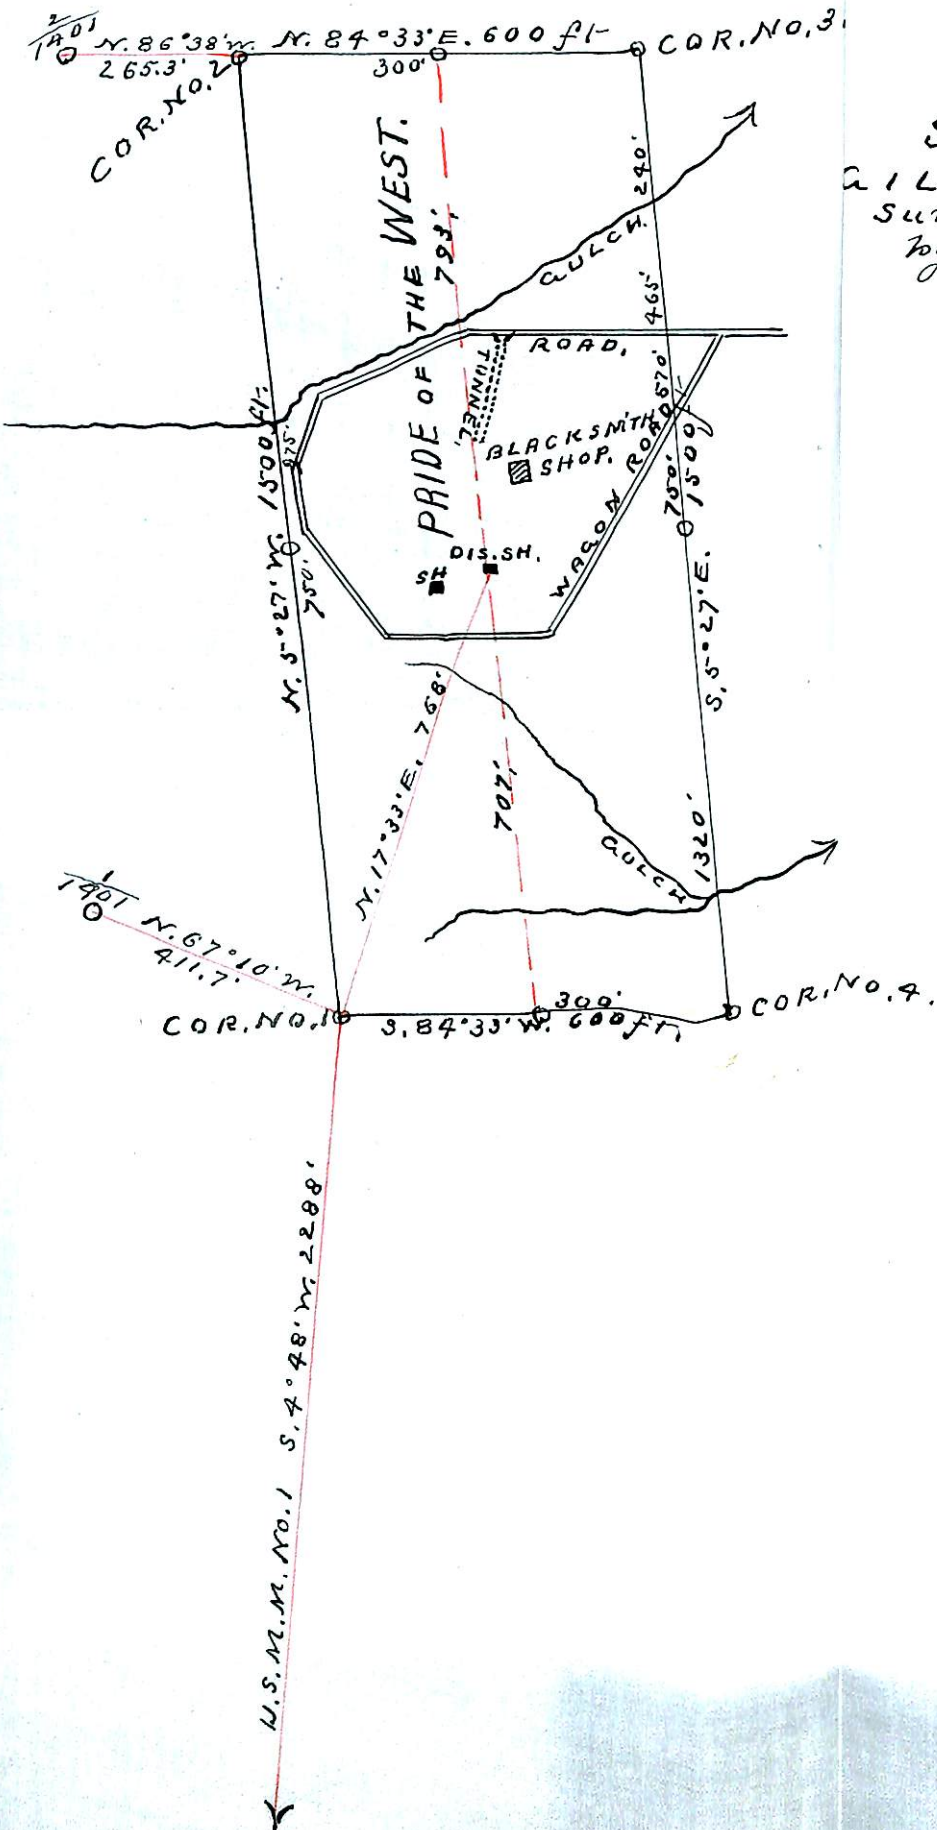 2/1401
N. 86°38' W. 265.3'
N. 84°33' E. 600 ft
300'
COR. NO. 3.
COR. NO. 2
240'
GULCH.
PRIDE OF THE WEST.
793'
465'
ROAD.
TUNNEL.
570'
BLACKSMITH
SHOP.
WAGON ROAD
N. 5°27' W. 1500 ft.
750'
750'
S. 5°27' E. 1500 ft
DIS. SH.
SH
N. 17°33' E. 768'
707'
GULCH
1320'
1/1401
N. 67°10' W.
411.7'
COR. NO. 1
S. 84°33' W. 600 ft.
300'
COR. NO. 4.
U.S.M.M. No. 1 S. 4°48' W. 2288'